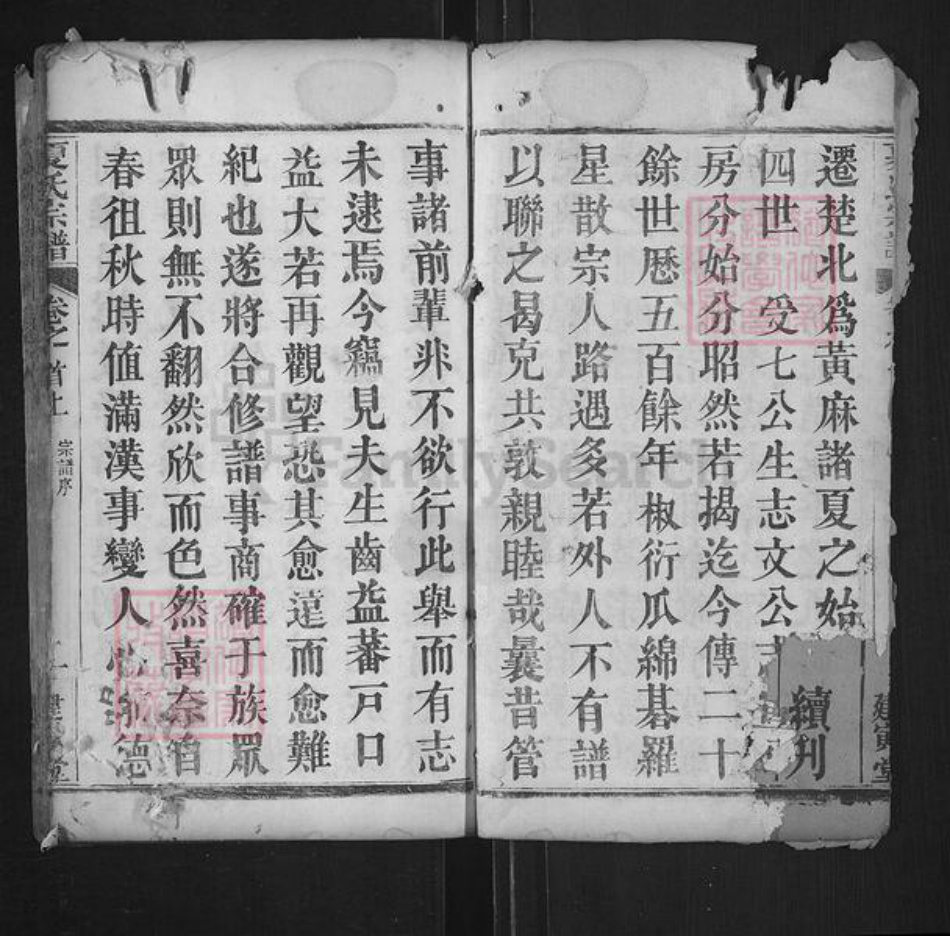 遷楚北爲黃麻諸夏之始
續刋
四世 受七公生志文公志
房分始分昭然若揭迄今傳二十
餘世厯五百餘年椒衍瓜綿碁羅
星散宗人路遇多若外人不有譜
以聯之曷克共敦親睦哉曩昔管
事諸前輩非不欲行此舉而有志
未逮焉今竊見夫生齒益蕃戸口
益大若再觀望恐其愈遠而愈難
紀也遂將合修譜事商確于族眾
眾則無不翻然欣而色然喜奈自
春徂秋時値滿漢事變人心
夏氏宗譜 卷之首上 宗譜序 二 建寅堂
FamilySearch